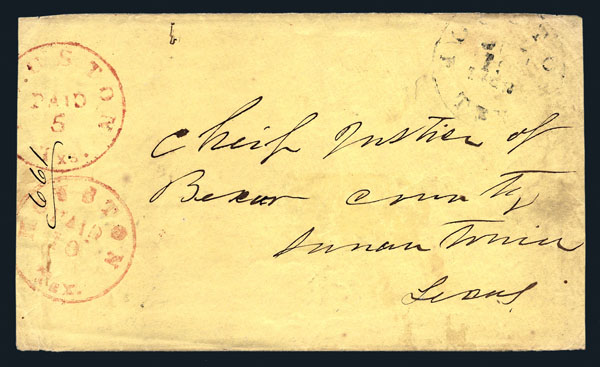 HOUSTON
PAID
5
Txs.
HOUSTON
PAID
10
Tex.
199
Cheif Justice of
Bexar County
Sanantonio
Texas